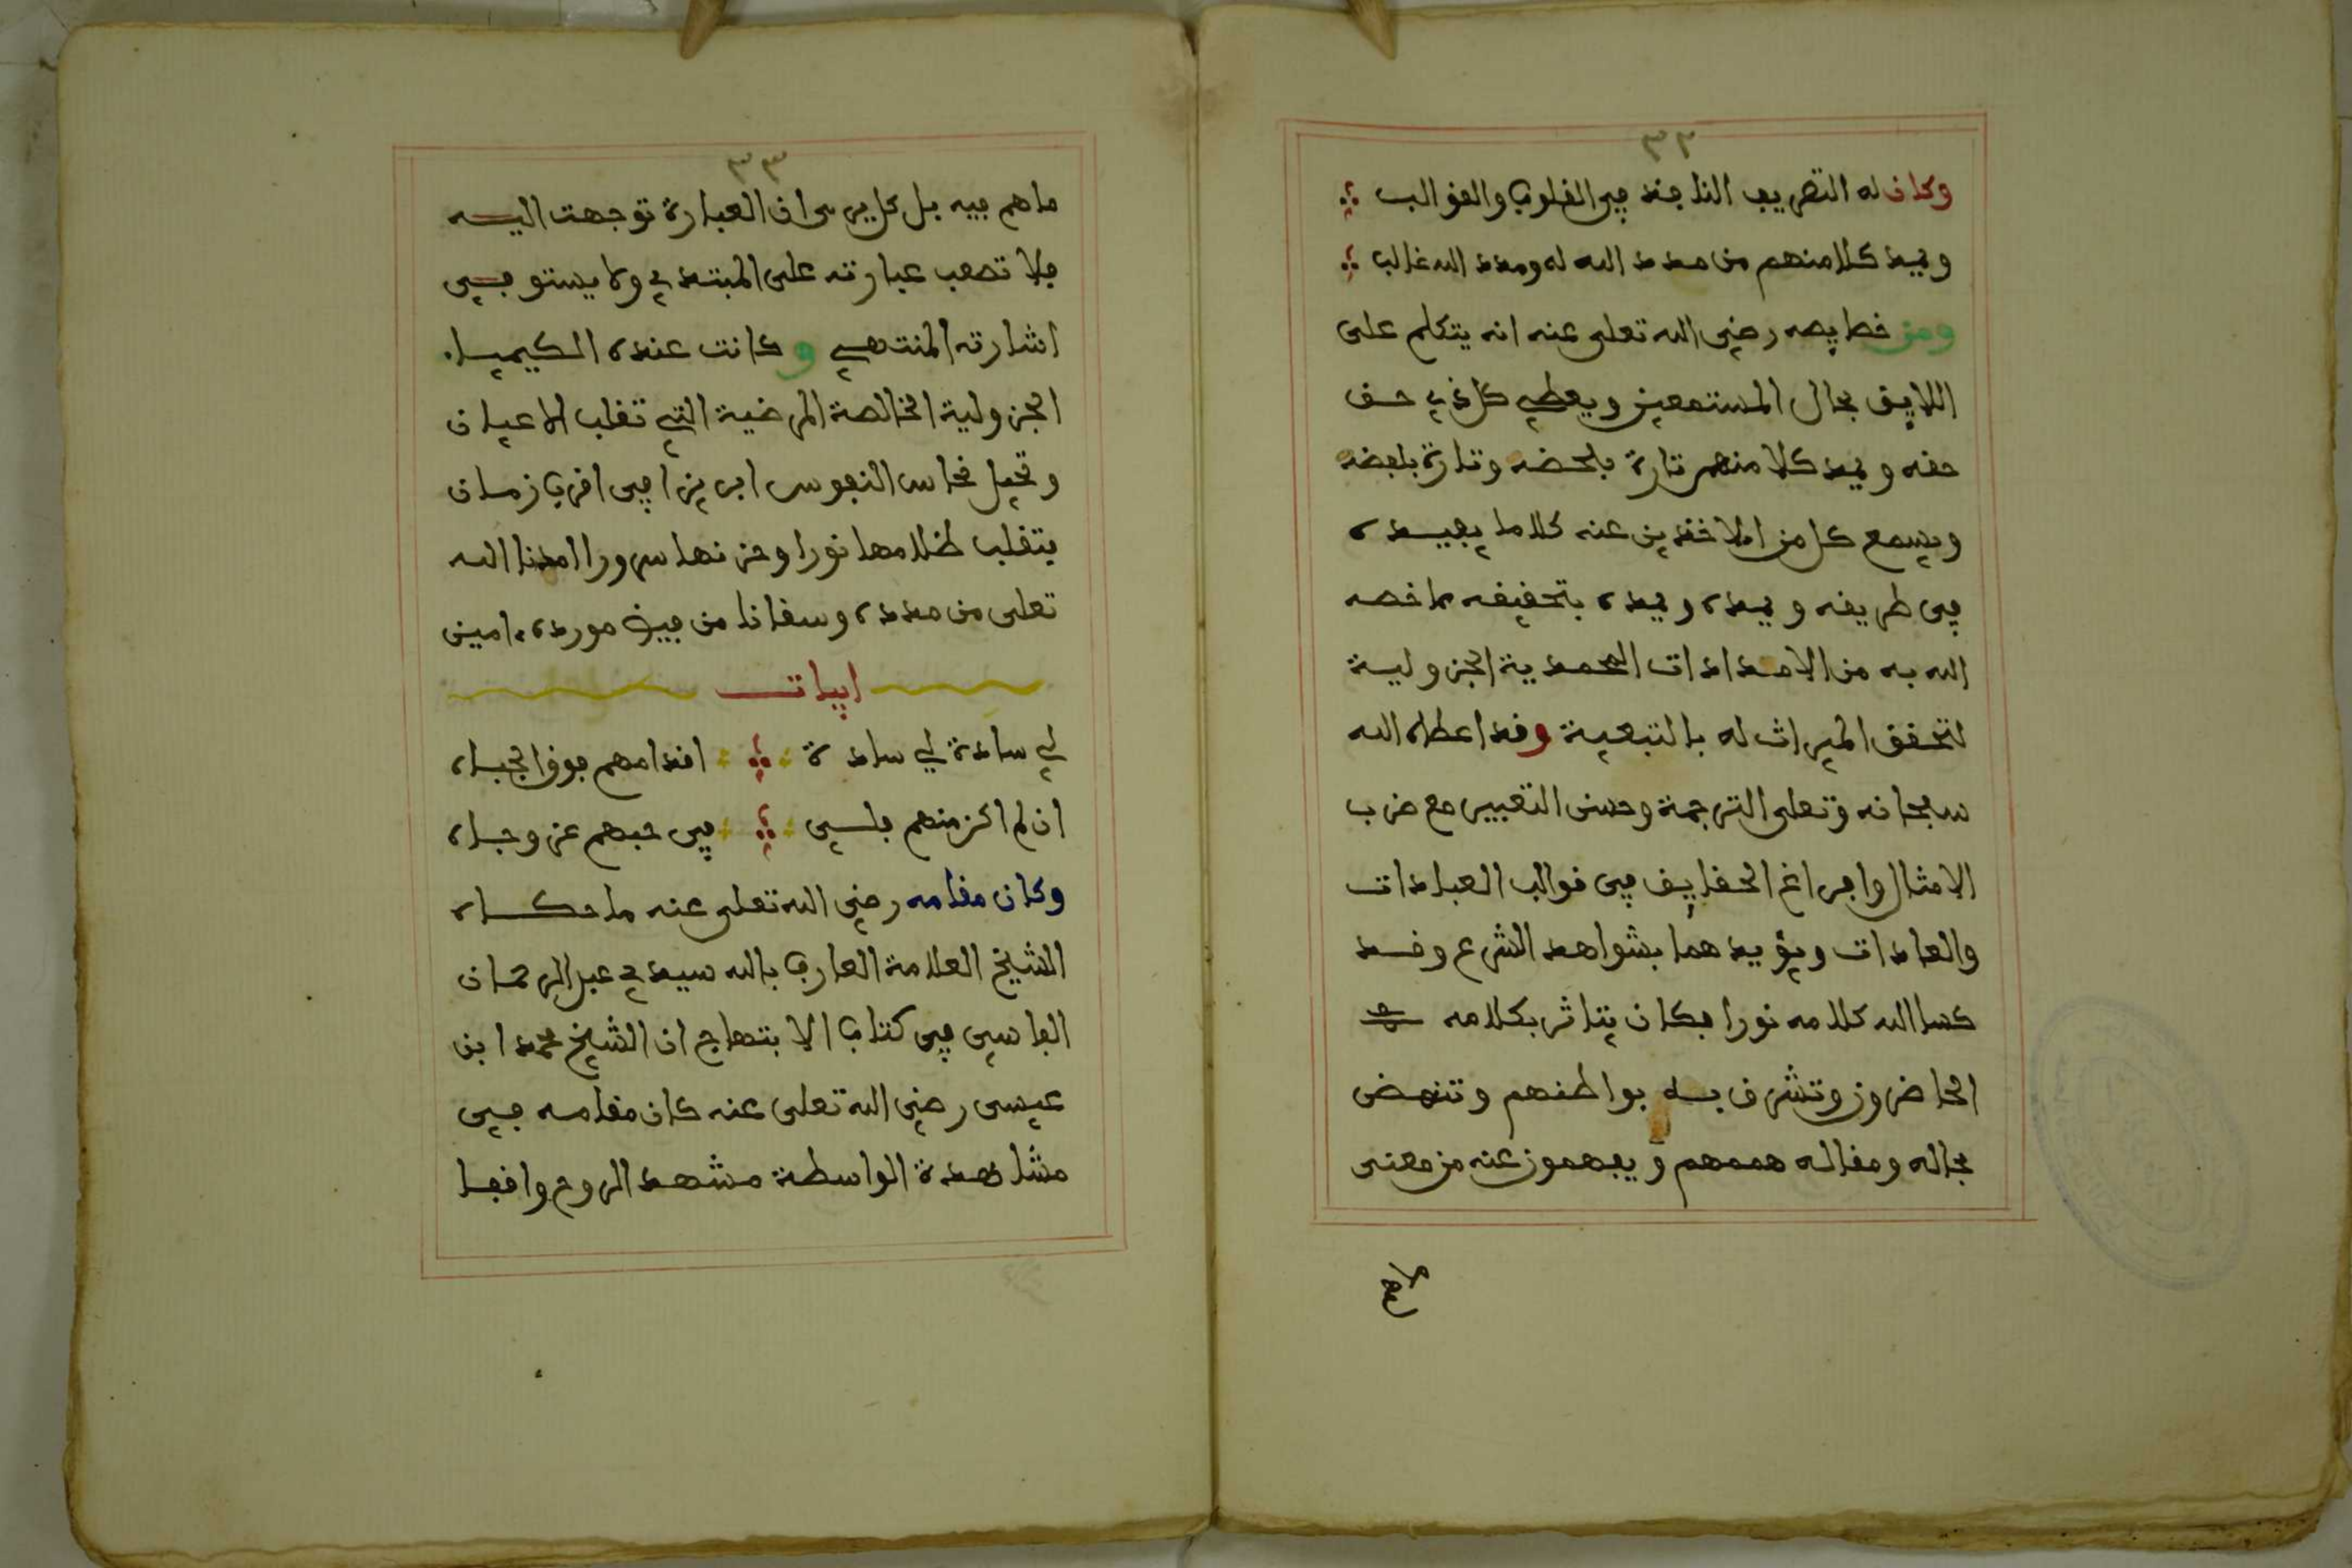 ٣٢
وكان له التصريف النافذ في القلوب والقوالب
ويمد كلا منهم من مدد الله له ومدد الله غالب
ومن خصايصه رضي الله تعلى عنه انه يتكلم على
اللايق بحال المستمعين ويعطي كل ذي حق
حقه ويمد كلا منهم تارة بلحضه وتارة بلعضه
ويسمع كل من الاخذين عنه كلاما يفيده
في طريقه ويمده ويمده بتحقيقه ما خصه
الله به من الامدادات المحمدية الجزولية
لتحقق الميراث له بالتبعية وقد اعطاه الله
سبحانه وتعلى الترجمة وحسن التعبير مع ضرب
الامثال وافراغ الحقايق في قوالب العبادات
والعادات ويؤيدهما بشواهد الشرع وقد
كسا الله كلامه نورا فكان يتاثر بكلامه
الحاضرون وتشرق به بواطنهم وتنهض
بحاله ومقاله هممهم ويفهمون عنه من معنى
ما هم
٣٣
ما هم فيه بل كل يرى ان العبارة توجهت اليه
فلا تصعب عبارته على المبتدي ولا يستوفي
اشارته المنتهي وكانت عنده الكيمياء
الجزولية الخالصة المرضية التي تقلب الاعيان
وتحيل نحاس النفوس ابريزا في اقرب زمان
يتقلب ظلامها نورا وحزنها سرورا امدنا الله
تعلى من مدده وسقانا من فيض مورده ءامين
ابيات
لي سادة لي سادة اقدامهم فوق الجباه
ان لم اكن منهم فلي في حبهم عز وجاه
وكان مقامه رضي الله تعلى عنه ما حكاه
الشيخ العلامة العارف بالله سيدي عبد الرحمان
الفاسي في كتاب الابتهاج ان الشيخ محمد ابن
عيسى رضي الله تعلى عنه كان مقامه في
مشاهدة الواسطة مشهد الروح واقفا